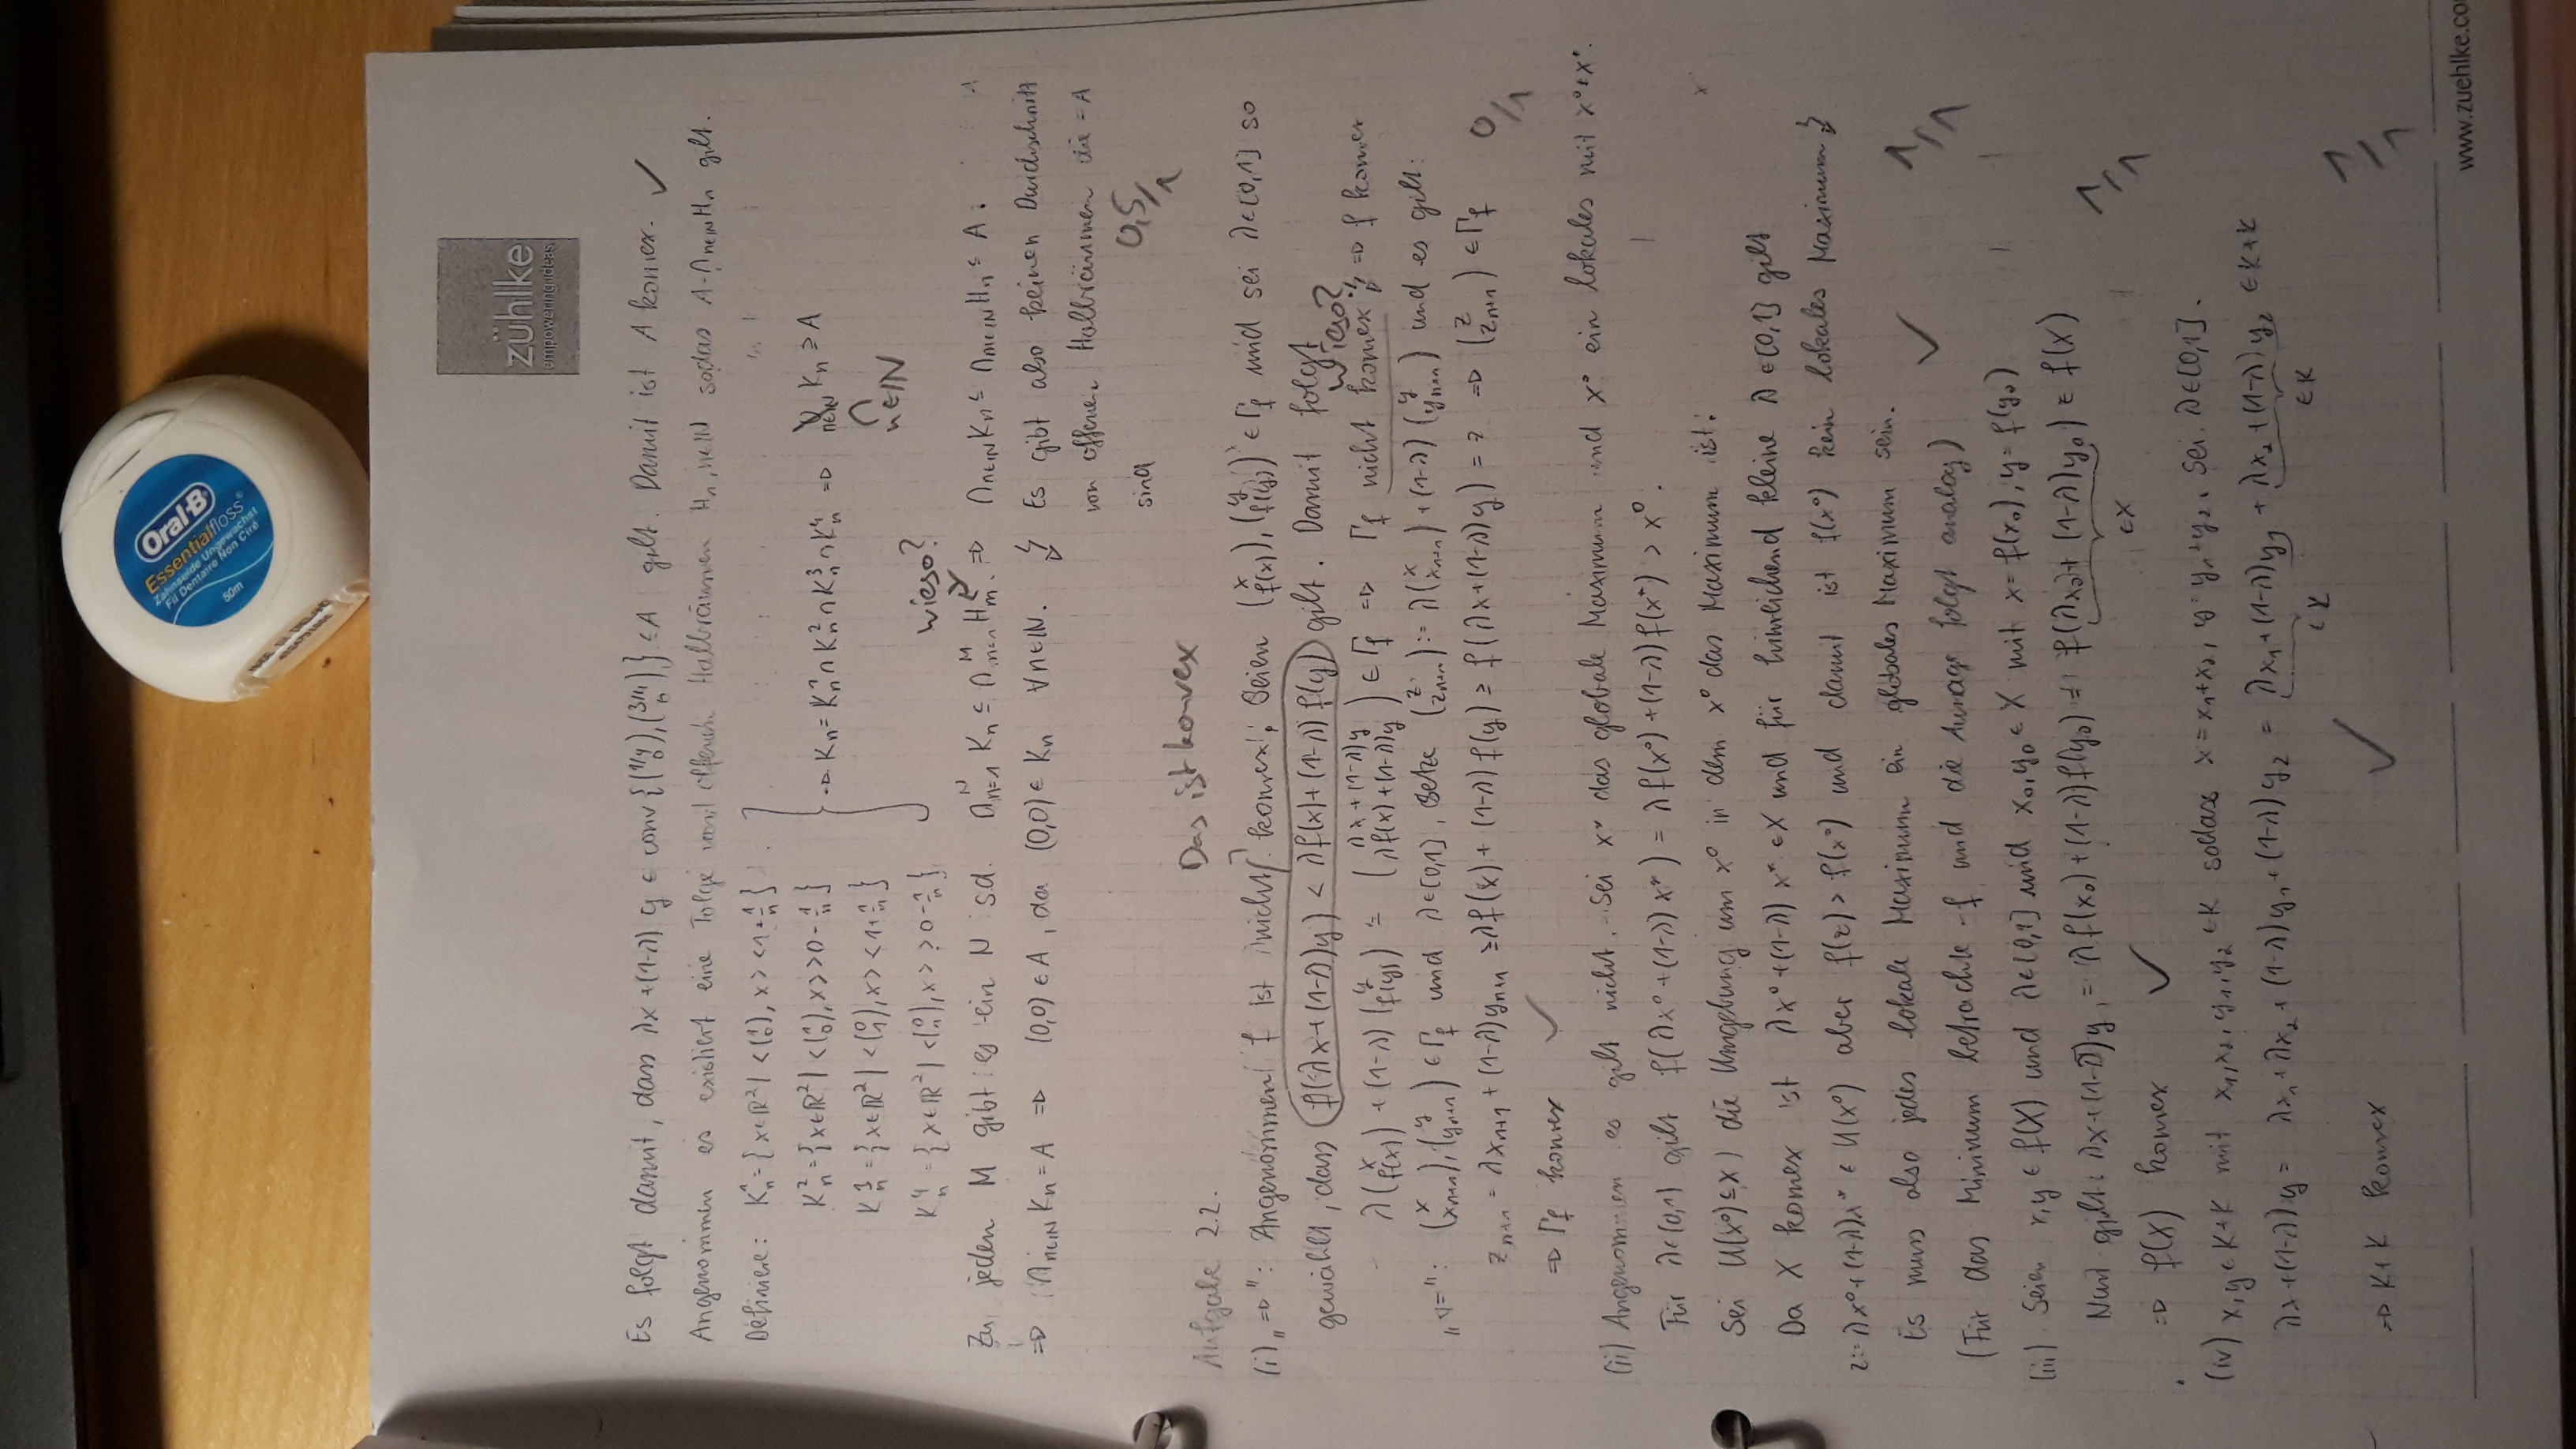 Oral-B
Essentialfloss®
Zahnseide Ungewachst
Fil Dentaire Non Ciré
50m
zühlke
empowering ideas
Es folgt damit, dass λx+(1-λ) y ∈ conv{(1/4 0),(3/4 n)} ⊆ A gilt. Damit ist A konvex. ✓
Angenommen es existiert eine Folge von offenen Halbräumen Hn, n∈ℕ sodas A=∩n∈ℕ Hn gilt.
Definiere: K¹n = {x∈ℝ² | <(1 0), x> < 1+1/n}
K²n = {x∈ℝ² | <(1 0), x> > 0-1/n}
⇒ Kn = K¹n ∩ K²n ∩ K³n ∩ K⁴n ⇒ n∈ℕ Kn ⊇ A
∩ n∈ℕ
K³n = {x∈ℝ² | <(0 1), x> < 1+1/n}
K⁴n = {x∈ℝ² | <(0 1), x> > 0-1/n}
wieso?
Zu jeden M gibt es ein N s.d. ∩ᴺn=1 Kn ⊆ ∩ᴹm=1 Hm ⇒ ∩n∈ℕ Kn ⊆ ∩m∈ℕ Hn ⊆ A.
⇒ ∩n∈ℕ Kn = A ⇒ (0,0) ∈ A, da (0,0) ∈ Kn ∀n∈ℕ. ↯ Es gibt also keinen Durchschnitt
von offenen Halbräumen die = A
sind
0,5/1
Das ist konvex
Aufgabe 2.2.
(i) „⇒": Angenommen f ist nicht konvex. Seien (x f(x)), (y f(y)) ∈ Γf und sei λ∈[0,1] so
gewählt, dass f(λx+(1-λ)y) < λf(x)+(1-λ) f(y) gilt. Damit folgt
wieso?
λ(x f(x)) + (1-λ) (y f(y)) = (λx+(1-λ)y λf(x)+(1-λ)y) ∈ Γf ⇒ Γf nicht konvex ↯ ⇒ f konvex
„⇐": (x xn+1), (y yn+1) ∈ Γf und λ∈[0,1], setze (z zn+1) := λ(x xn+1) + (1-λ) (y yn+1) und es gilt:
zn+1 = λxn+1 + (1-λ)yn+1 ≥ λf(x) + (1-λ) f(y) ≥ f(λx+(1-λ)y) = z ⇒ (z zn+1) ∈ Γf
0/1
⇒ Γf konvex ✓
(ii) Angenommen es gilt nicht. Sei x* das globale Maximum und x° ein lokales mit x°≠x*.
Für λ∈(0,1) gilt f(λx°+(1-λ) x*) = λf(x°)+(1-λ)f(x*) > x°.
Sei U(x°)⊆X) die Umgebung um x° in dem x° das Maximum ist.
Da X konvex ist λx°+(1-λ) x* ∈ X und für hinreichend kleine λ ∈[0,1] gilt
z:= λx°+(1-λ)x* ∈ U(x°) aber f(z) > f(x°) und damit ist f(x°) kein lokales Maximum ↯
Es muss also jedes lokale Maximum ein globales Maximum sein. ✓
1/1
(Für das Minimum betrachte -f und die Aussage folgt analog)
(iii) Seien x,y ∈ f(X) und λ∈[0,1] und x₀,y₀ ∈ X mit x=f(x₀), y=f(y₀)
Nun gilt: λx+(1-λ)y = λf(x₀)+(1-λ)f(y₀) = f(λx₀+(1-λ)y₀) ∈ f(X)
∈X
1/1
⇒ f(X) konvex ✓
(iv) x,y ∈ K+K mit x₁,x₂,y₁,y₂ ∈K sodass x=x₁+x₂, y=y₁+y₂. Sei λ∈[0,1].
λx+(1-λ)y = λx₁+λx₂+(1-λ)y₁+(1-λ)y₂ = λx₁+(1-λ)y₁ + λx₂+(1-λ)y₂ ∈ K+K
∈K ∈K
⇒ K+K konvex ✓
1/1
www.zuehlke.co